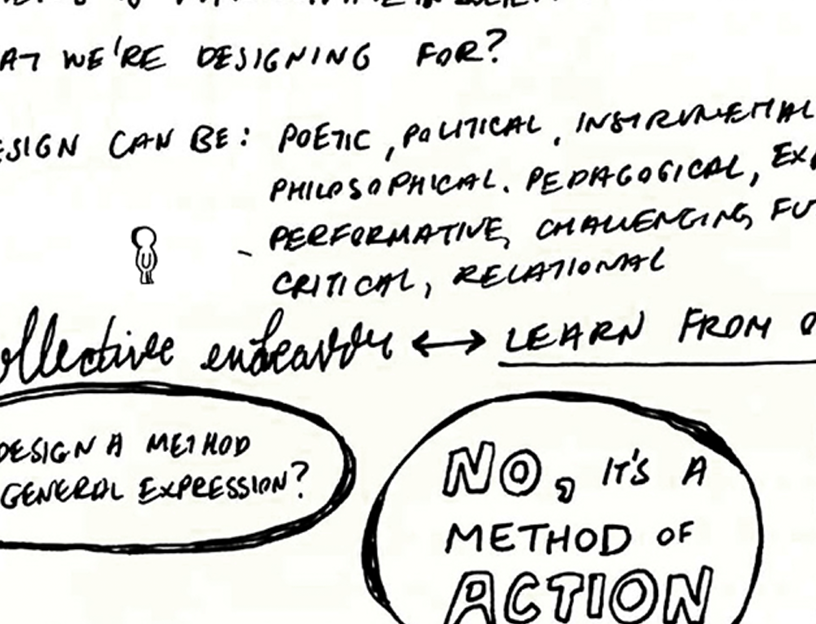 AT WE'RE DESIGNING FOR?
ESIGN CAN BE: POETIC, POLITICAL, INSTRUMENTAL
PHILOSOPHICAL. PEDAGOGICAL, EX
PERFORMATIVE, CHALLENGING, FU
- CRITICAL, RELATIONAL
ollective endeavour ↔ LEARN FROM O
DESIGN A METHOD
GENERAL EXPRESSION?
NO, IT'S A
METHOD OF
ACTION